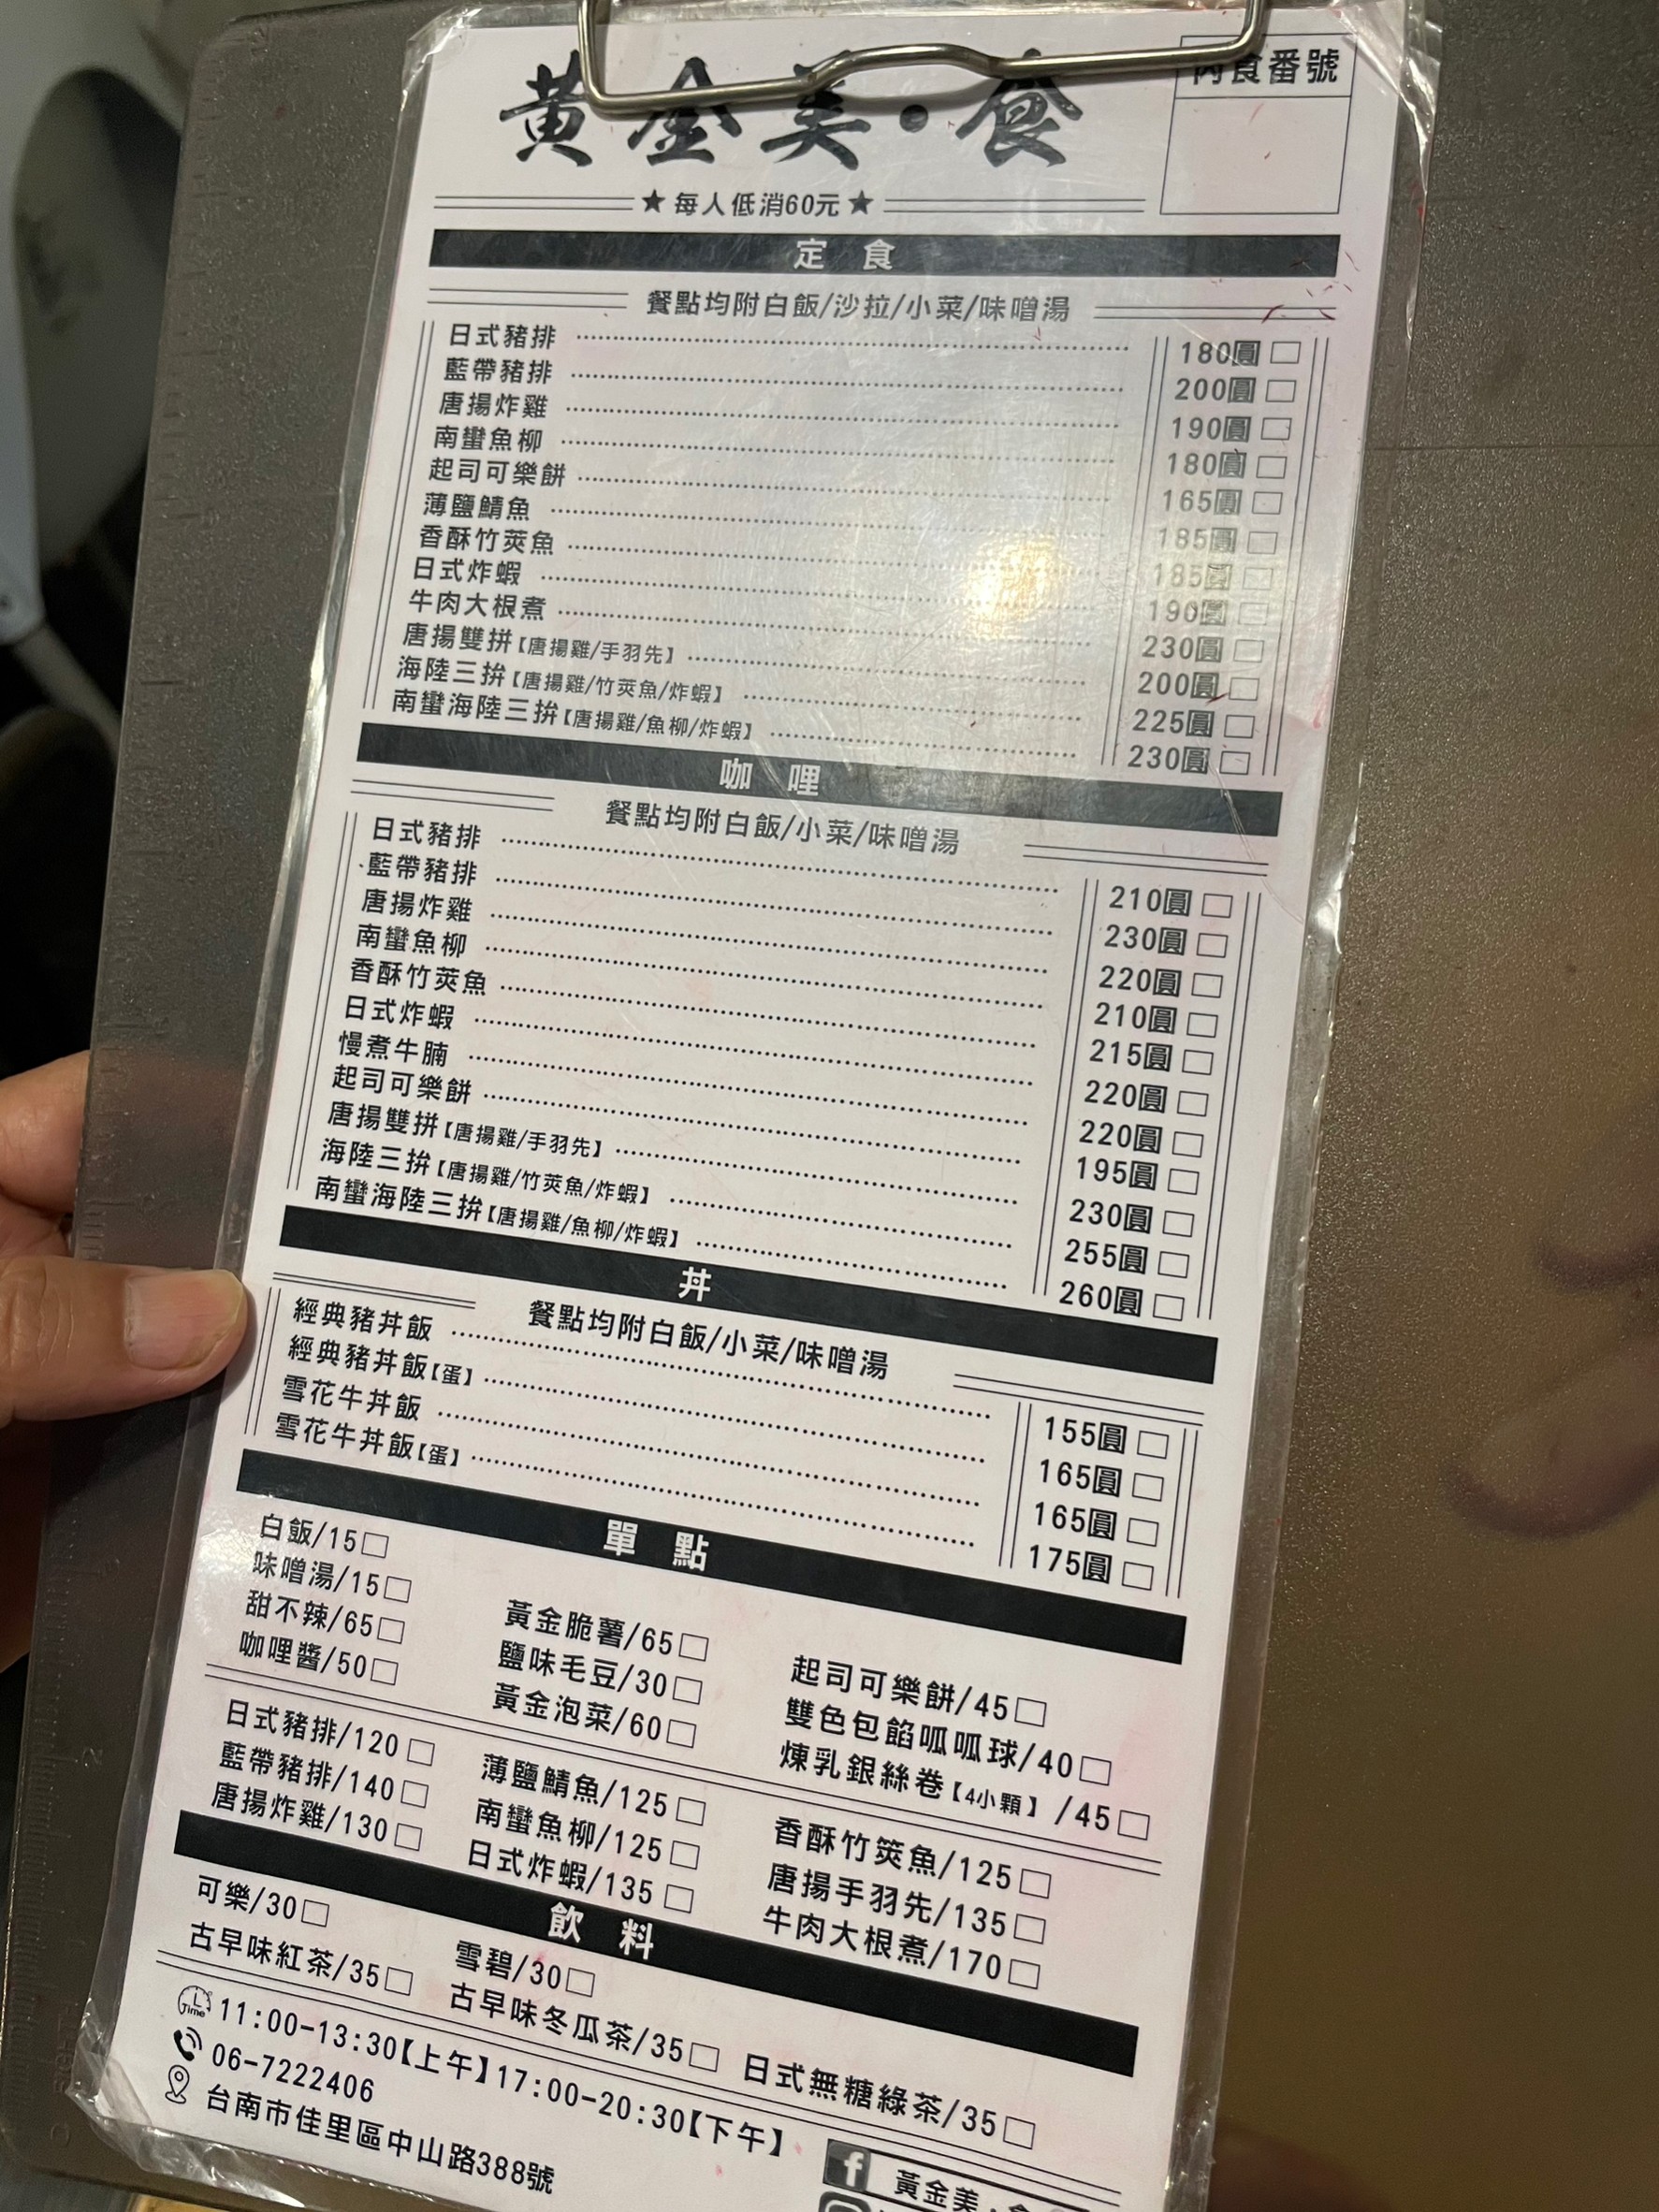 黃金美·食
內食番號
★每人低消60元★
定食
餐點均附白飯/沙拉/小菜/味噌湯
日式豬排 180圓
藍帶豬排 200圓
唐揚炸雞 190圓
南蠻魚柳 180圓
起司可樂餅 165圓
薄鹽鯖魚 185圓
香酥竹莢魚 185圓
日式炸蝦 190圓
牛肉大根煮 230圓
唐揚雙拼【唐揚雞/手羽先】 200圓
海陸三拚【唐揚雞/竹莢魚/炸蝦】 225圓
南蠻海陸三拚【唐揚雞/魚柳/炸蝦】 230圓
咖哩
餐點均附白飯/小菜/味噌湯
日式豬排 210圓
藍帶豬排 230圓
唐揚炸雞 220圓
南蠻魚柳 210圓
香酥竹莢魚 215圓
日式炸蝦 220圓
慢煮牛腩 220圓
起司可樂餅 195圓
唐揚雙拼【唐揚雞/手羽先】 230圓
海陸三拚【唐揚雞/竹莢魚/炸蝦】 255圓
南蠻海陸三拚【唐揚雞/魚柳/炸蝦】 260圓
丼
餐點均附白飯/小菜/味噌湯
經典豬丼飯 155圓
經典豬丼飯【蛋】 165圓
雪花牛丼飯 165圓
雪花牛丼飯【蛋】 175圓
單點
白飯/15
味噌湯/15
甜不辣/65
咖哩醬/50
黃金脆薯/65
鹽味毛豆/30
黃金泡菜/60
起司可樂餅/45
雙色包餡呱呱球/40
煉乳銀絲卷【4小顆】/45
日式豬排/120
藍帶豬排/140
唐揚炸雞/130
薄鹽鯖魚/125
南蠻魚柳/125
日式炸蝦/135
香酥竹筴魚/125
唐揚手羽先/135
牛肉大根煮/170
飲料
可樂/30
古早味紅茶/35
雪碧/30
古早味冬瓜茶/35
日式無糖綠茶/35
Time 11:00-13:30【上午】17:00-20:30【下午】
06-7222406
台南市佳里區中山路388號
f 黃金美·食